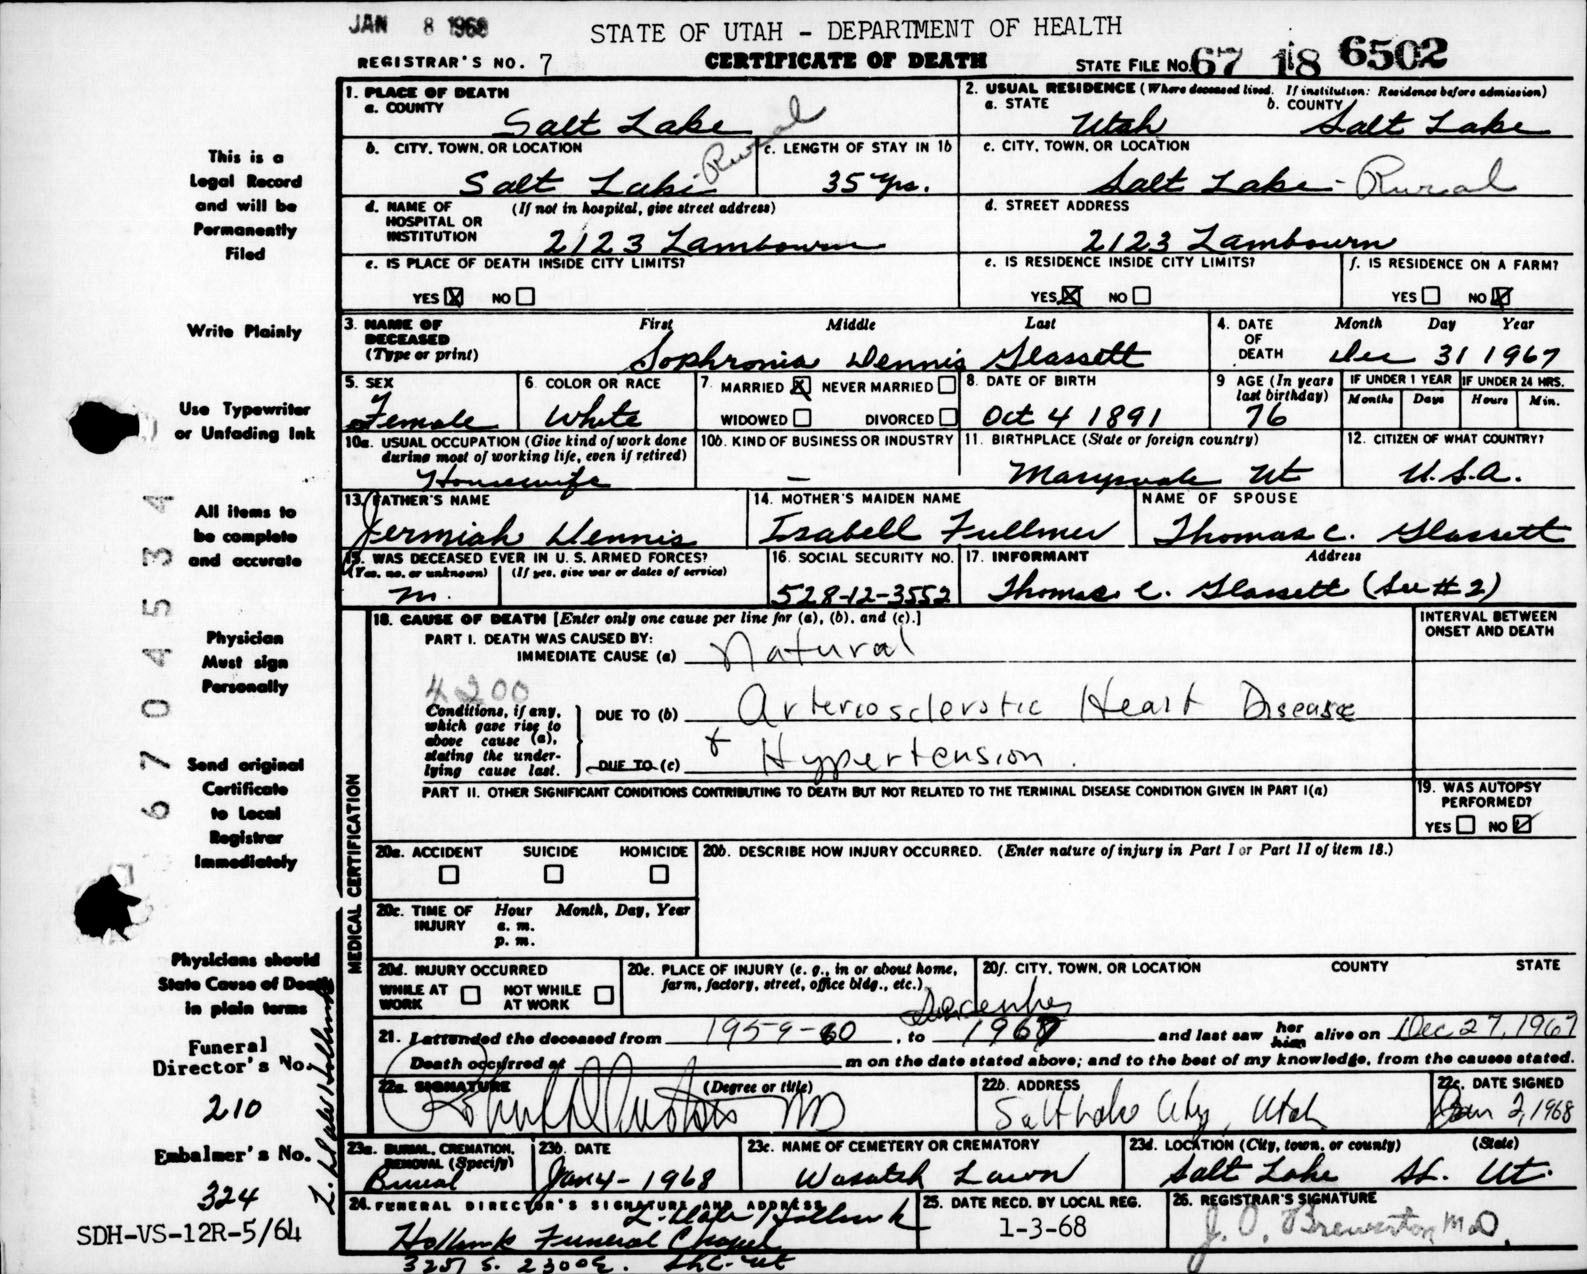 JAN 8 1968
STATE OF UTAH - DEPARTMENT OF HEALTH
REGISTRAR'S NO. 7
CERTIFICATE OF DEATH
STATE FILE NO. 67 18 6502
This is a
Legal Record
and will be
Permanently
Filed
Write Plainly
Use Typewriter
or Unfading Ink
All items to
be complete
and accurate
Physician
Must sign
Personally
Send original
Certificate
to Local
Registrar
Immediately
Physicians should
State Cause of Death
in plain terms
Funeral
Director's No.
210
Embalmer's No.
324
SDH-VS-12R-5/64
67045534
1. PLACE OF DEATH
a. COUNTY
Salt Lake
2. USUAL RESIDENCE (Where deceased lived. If institution: Residence before admission)
a. STATE
Utah
b. COUNTY
Salt Lake
b. CITY, TOWN, OR LOCATION
Salt Lake Rural
c. LENGTH OF STAY IN 1b
35 Yrs.
c. CITY, TOWN, OR LOCATION
Salt Lake - Rural
d. NAME OF HOSPITAL OR INSTITUTION (If not in hospital, give street address)
2123 Lambourn
d. STREET ADDRESS
2123 Lambourn
e. IS PLACE OF DEATH INSIDE CITY LIMITS?
YES NO
e. IS RESIDENCE INSIDE CITY LIMITS?
YES NO
f. IS RESIDENCE ON A FARM?
YES NO
3. NAME OF DECEASED (Type or print)
First Middle Last
Sophronia Dennis Glassett
4. DATE OF DEATH
Month Day Year
Dec 31 1967
5. SEX
Female
6. COLOR OR RACE
White
7. MARRIED NEVER MARRIED
WIDOWED DIVORCED
8. DATE OF BIRTH
Oct 4 1891
9 AGE (In years last birthday)
76
IF UNDER 1 YEAR
Months Days
IF UNDER 24 HRS.
Hours Min.
10a. USUAL OCCUPATION (Give kind of work done during most of working life, even if retired)
Housewife
10b. KIND OF BUSINESS OR INDUSTRY
—
11. BIRTHPLACE (State or foreign country)
Marysvale Ut
12. CITIZEN OF WHAT COUNTRY?
U.S.A.
13. FATHER'S NAME
Jermiah Dennis
14. MOTHER'S MAIDEN NAME
Isabell Fullmer
NAME OF SPOUSE
Thomas C. Glassett
15. WAS DECEASED EVER IN U. S. ARMED FORCES?
(Yes, no, or unknown) (If yes, give war or dates of service)
16. SOCIAL SECURITY NO.
528-12-3552
17. INFORMANT Address
Thomas C. Glassett (See #2)
MEDICAL CERTIFICATION
18. CAUSE OF DEATH [Enter only one cause per line for (a), (b), and (c).]
PART I. DEATH WAS CAUSED BY:
IMMEDIATE CAUSE (a) Natural
INTERVAL BETWEEN ONSET AND DEATH
4200
Conditions, if any, which gave rise to above cause (a), stating the underlying cause last.
DUE TO (b) Arteriosclerotic Heart Disease
DUE TO (c) + Hypertension.
PART II. OTHER SIGNIFICANT CONDITIONS CONTRIBUTING TO DEATH BUT NOT RELATED TO THE TERMINAL DISEASE CONDITION GIVEN IN PART I(a)
19. WAS AUTOPSY PERFORMED?
YES NO
20a. ACCIDENT SUICIDE HOMICIDE
20b. DESCRIBE HOW INJURY OCCURRED. (Enter nature of injury in Part I or Part II of item 18.)
20c. TIME OF INJURY
Hour Month, Day, Year
a. m.
p. m.
20d. INJURY OCCURRED
WHILE AT WORK NOT WHILE AT WORK
20e. PLACE OF INJURY (e. g., in or about home, farm, factory, street, office bldg., etc.)
20f. CITY, TOWN, OR LOCATION COUNTY STATE
21. I attended the deceased from 1959-60, to December 1967 and last saw her him alive on Dec 27, 1967
Death occurred at m on the date stated above; and to the best of my knowledge, from the causes stated.
22a. SIGNATURE (Degree or title)
MD
22b. ADDRESS
Salt Lake City, Utah
22c. DATE SIGNED
Jan 2, 1968
23a. BURIAL, CREMATION, REMOVAL (Specify)
Burial
23b. DATE
Jan 4 - 1968
23c. NAME OF CEMETERY OR CREMATORY
Wasatch Lawn
23d. LOCATION (City, town, or county) (State)
Salt Lake SL. Ut.
24. FUNERAL DIRECTOR'S SIGNATURE AND ADDRESS
Funeral Chapel
S. 2300 E. SLC. Ut
25. DATE RECD. BY LOCAL REG.
1-3-68
26. REGISTRAR'S SIGNATURE
J. O. Brewerton M.D.